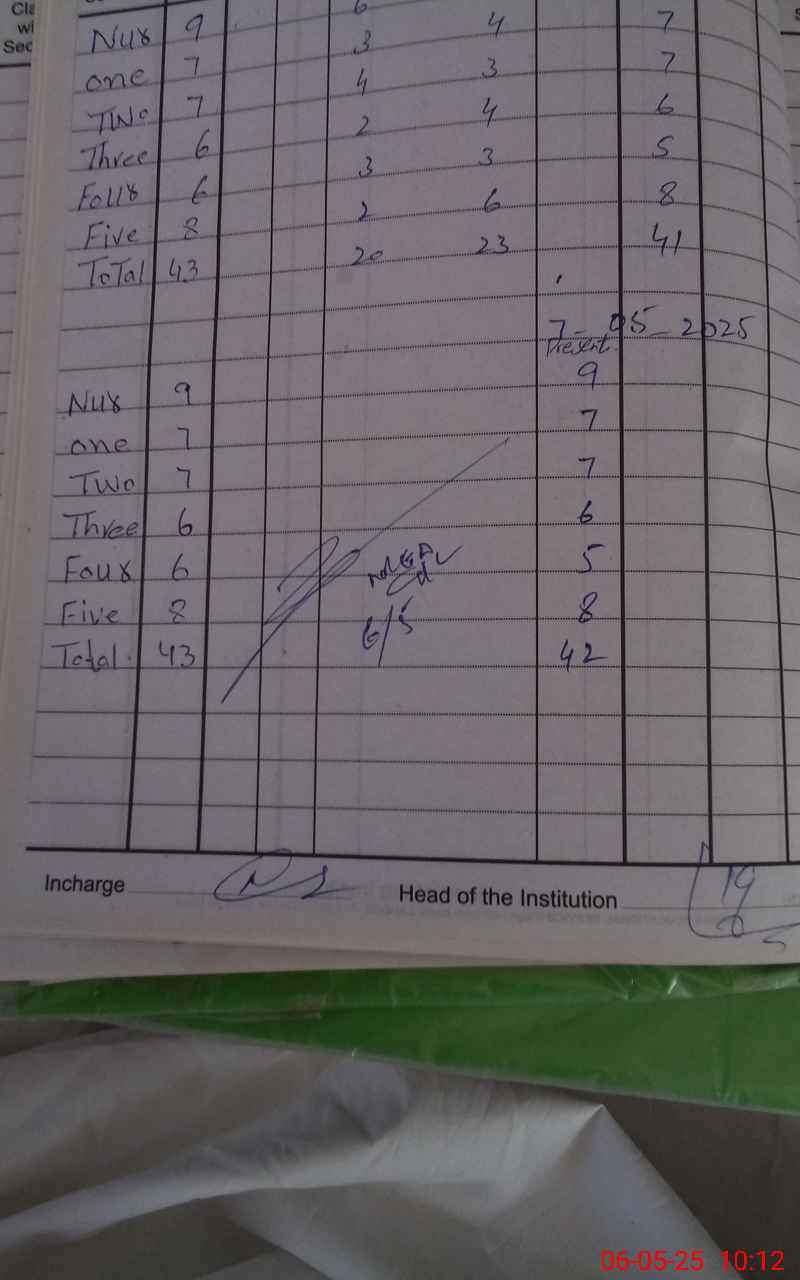 Cla
wi
Sec
6
Nur 9 3 4 7
one 7 4 3 7
Two 7 2 4 6
Three 6 3 3 5
Four 6 2 6 8
Five 8
Total 43 20 23 41
7-05-2025
Present
Nur 9 9
one 7 7
Two 7 7
Three 6 6
Four 6 5
Five 8 8
6/5
Total 43 42
Incharge Head of the Institution
06-05-25 10:12